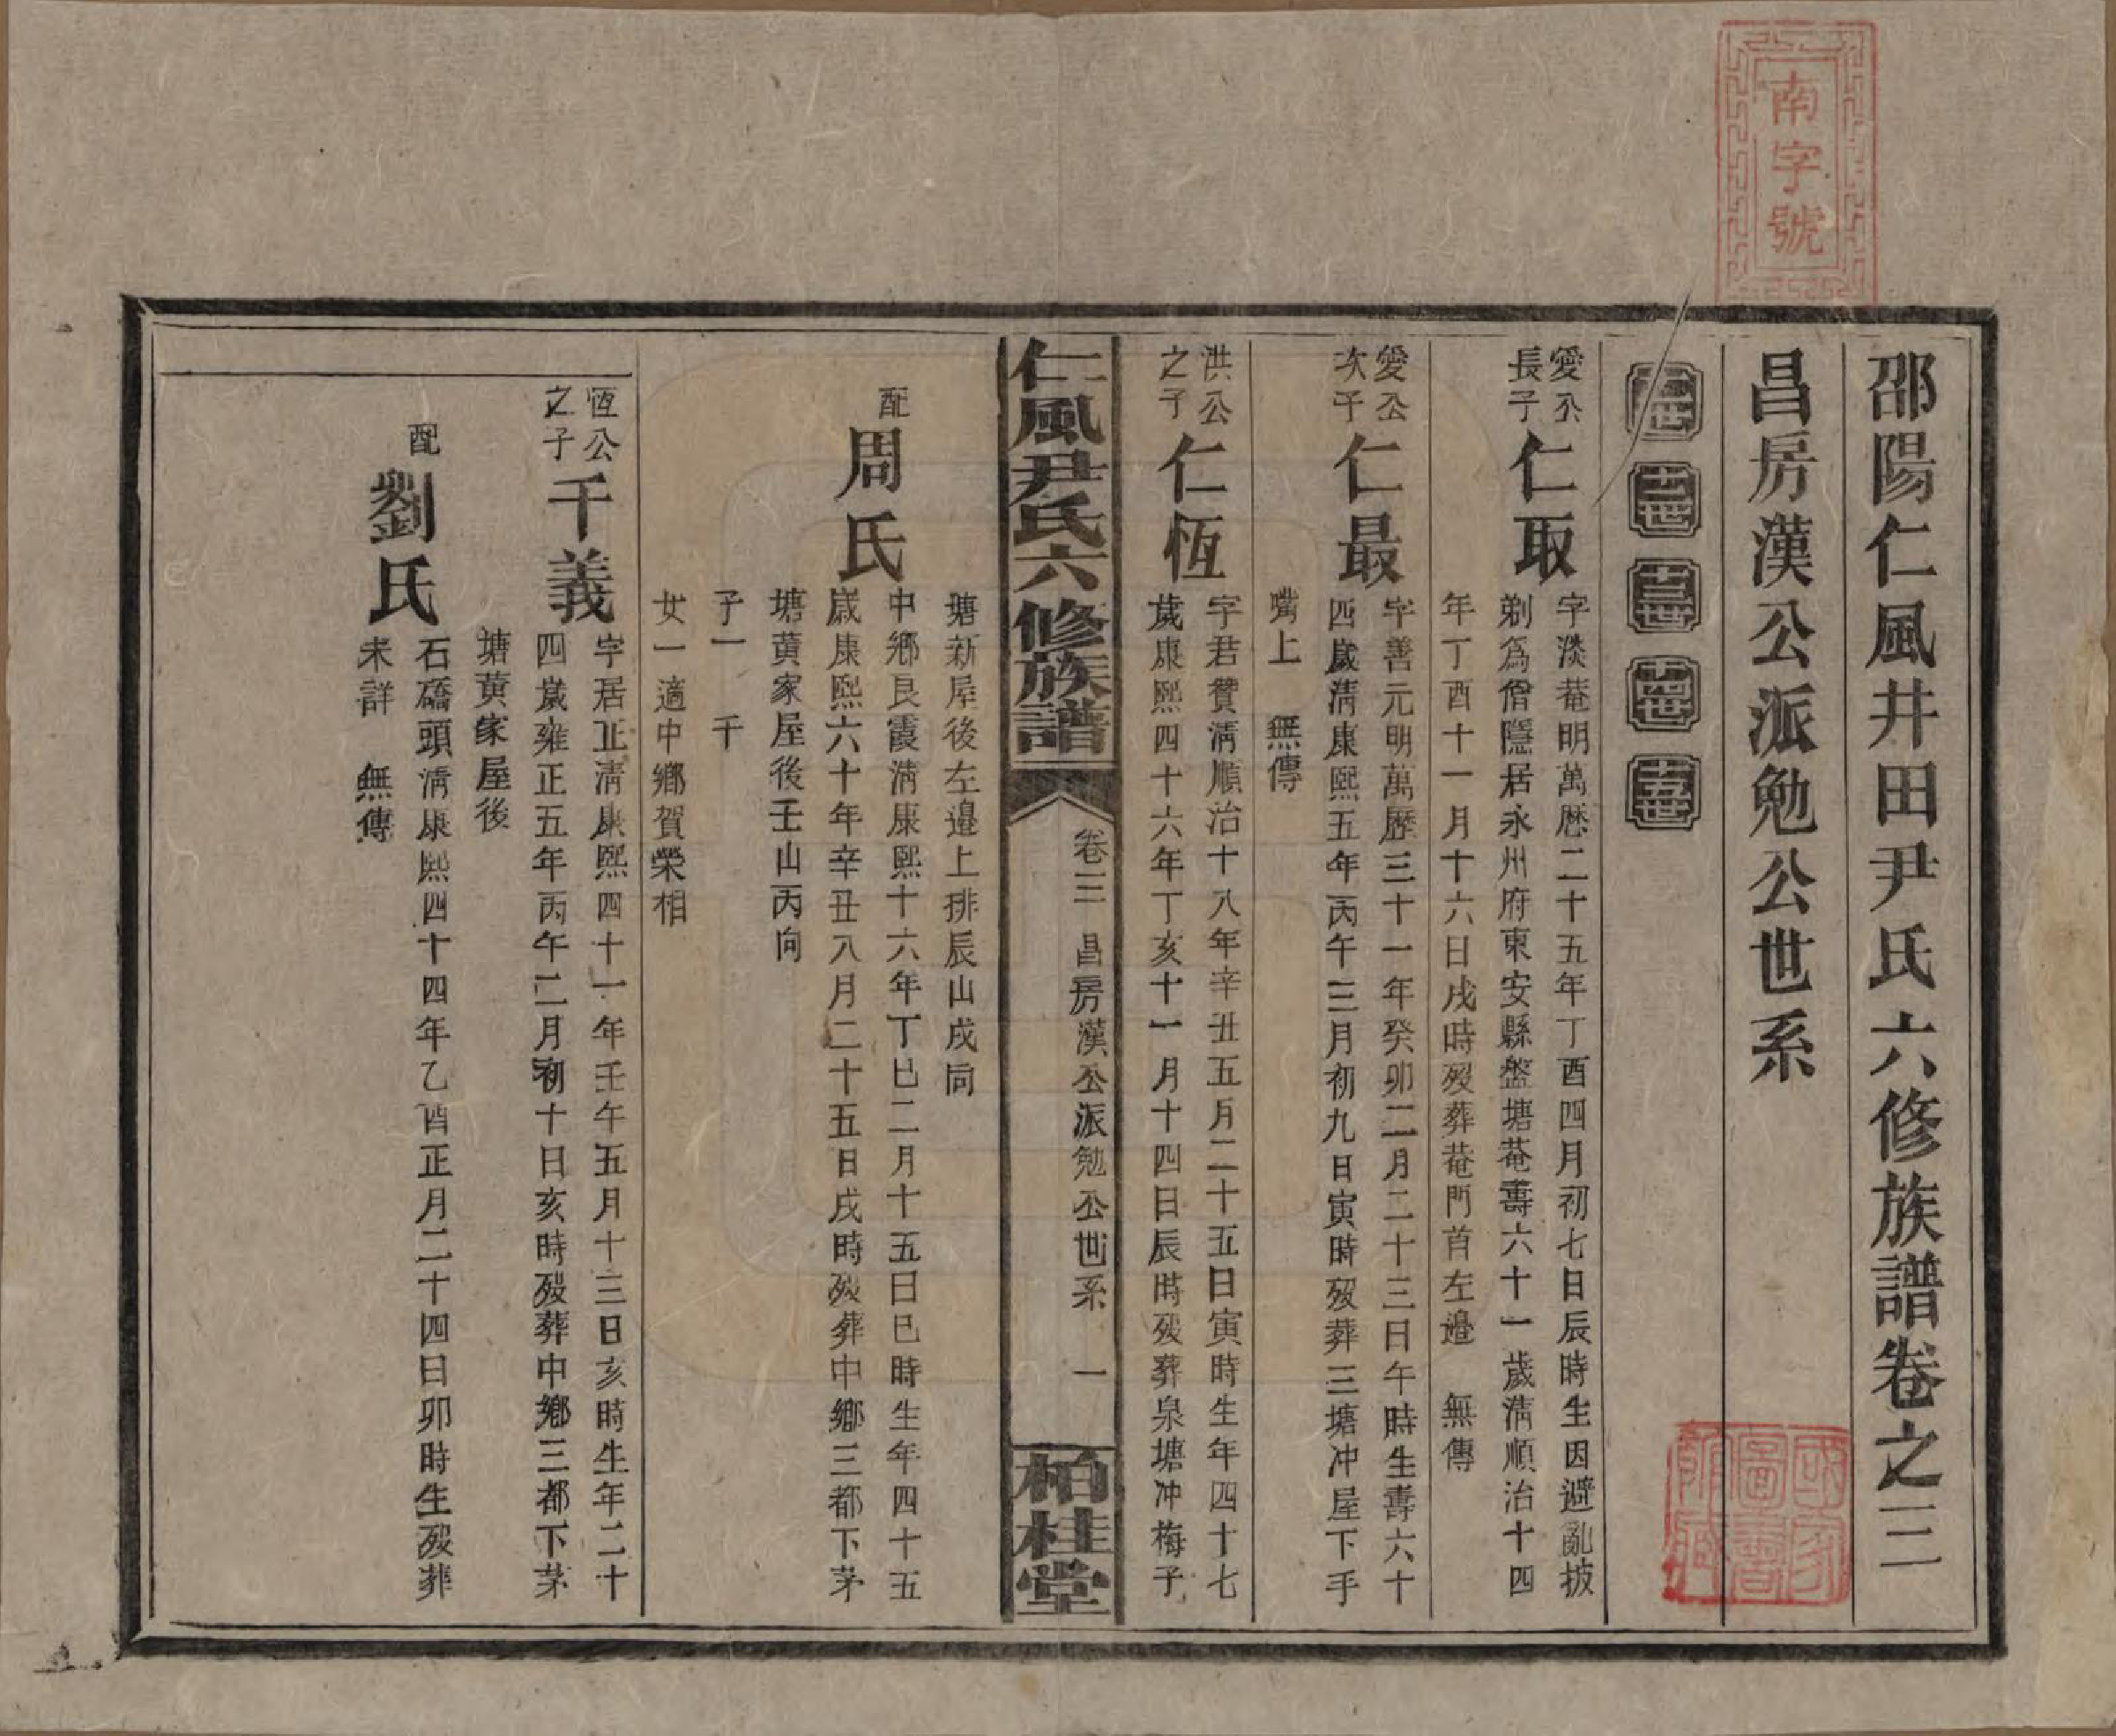 南字號
邵陽仁風井田尹氏六修族譜卷之三
昌房漢公派勉公世系
十二世
十三世
十四世
十五世
愛公長子
仁取
字淡菴明萬曆二十五年丁酉四月初七日辰時生因避亂披
剃為僧隱居永州府東安縣盤塘菴壽六十一歲清順治十四
年丁酉十一月十六日戌時歿葬菴門首左邊　無傳
愛公次子
仁最
字善元明萬曆三十一年癸卯二月二十三日午時生壽六十
四歲清康熙五年丙午三月初九日寅時歿葬三塘冲屋下手
嘴上　無傳
洪公之子
仁恆
字君贊清順治十八年辛丑五月二十五日寅時生年四十七
歲康熙四十六年丁亥十一月十四日辰時歿葬泉塘冲梅子
仁風尹氏六修族譜
卷三　昌房漢公派勉公世系　一
栢桂堂
塘新屋後左邊上排辰山戌向
配
周氏
中鄉良霞清康熙十六年丁巳二月十五日巳時生年四十五
歲康熙六十年辛丑八月二十五日戌時歿葬中鄉三都下茅
塘黄家屋後壬山丙向
子一　千
女一適中鄉賀榮相
恆公之子
千義
字居正清康熙四十一年壬午五月十三日亥時生年二十
四歲雍正五年丙午二月初十日亥時歿葬中鄉三都下茅
塘黄家屋後
配
劉氏
石礄頭清康熙四十四年乙酉正月二十四日卯時生歿葬
未詳　無傳